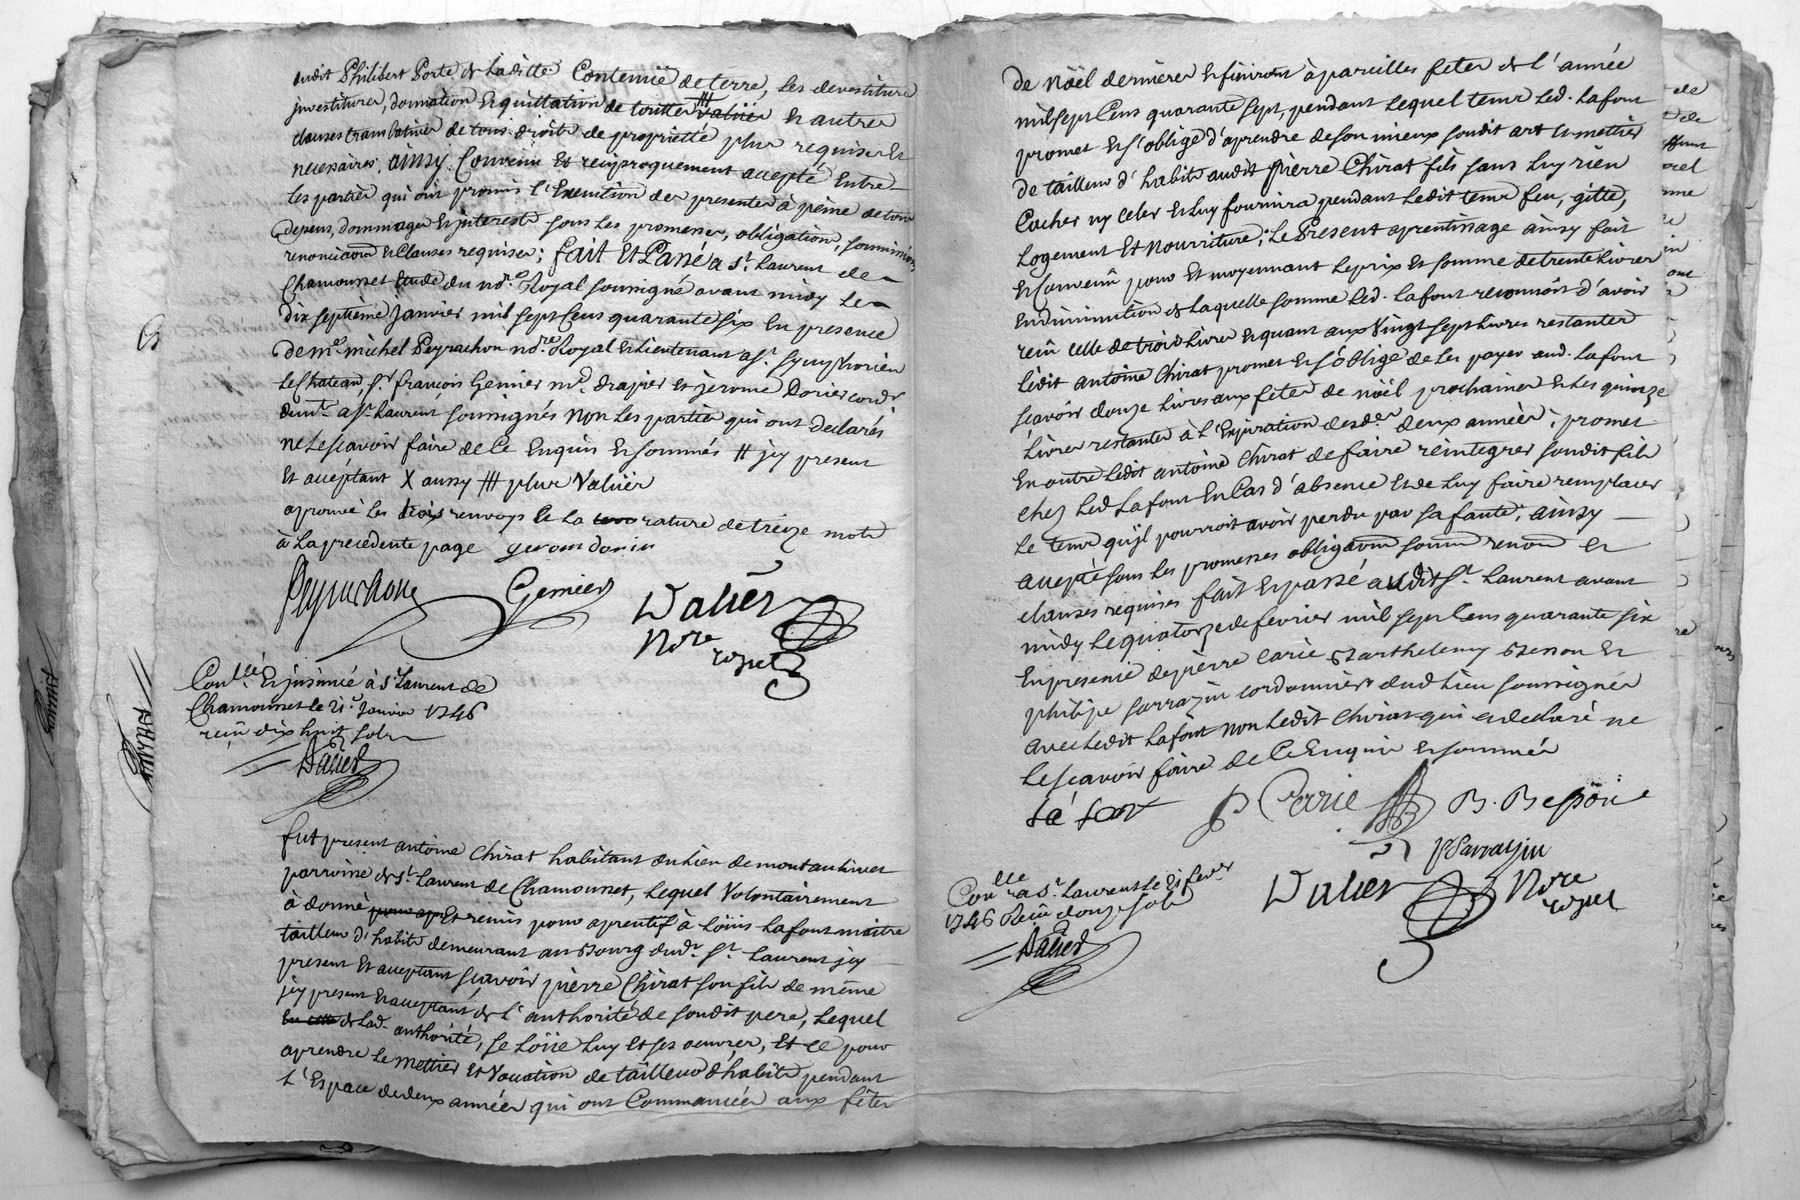 audit Philibert Porte de Laditte Contenüe de terre, Les devestiture
jnvestiturer, donnation Et quittation de toutter ||| valüer Et autrer
clauses translativer de tous droits de proprietté plus requiser Et
necessaires. ainsy Convenü Et reciproquement accepté Entre
Les partier qui ont promis l'Execution der presenter à peine de tous
depens, dommager Et jnterests sous Les promesser, obligation, soumissions
renonciaons Et Clauses requiser; fait Et Passé a St. Laurent de
Chamousset Etude du nore. Royal soussigné avant midy Le
dix septième janvier mil sept Cens quarante six En presence
de me. michel Peyrachon nore. Royal Et Lieutenant a St. symphorien
Le Chateau, sr. françois Gemier md. drapier Et jerome Dorier cordr.
demt. a St. Laurent soussignés non Les partier qui ont declarés
ne Le sçavoir faire de Ce Enquis Et sommés # jcy present
Et acceptant X aussy ||| plus Valüer
aprouvé Les trois renvoys Et La rature de treize mots
à La precedente page gerome dorier
Peyrachon Gemier Valier
Nore
royal
Conllé. Et jnsinüé à St. Laurent de
Chamousset le 21e. Janvier 1746
reçû dix huit sols
Valier
fut present antoine Chirat habitant du Lieu de montauliner
parroisse de St. Laurent de Chamousset, Lequel Volontairement
à donné pour ap Et remis pour aprentif à Loüis Lafont maitre
tailleur d'habits demeurant au Bourg dudt. St. Laurent jcy
present Et acceptant sçavoir pierre Chirat son fils de même
jcy present Et acceptant de l'authorité de sondit pere, Lequel
En cette de Lad. authorité, se Loüe Luy Et ses oeuvrer, Et Ce pour
aprendre Le mettier Et Vacation de tailleur d'habits pendant
L'Espace de deux annéer qui ont Commancéer aux fêter
de Nöel dernierer Et finiront à pareilles feter de l'année
mil sept Cens quarante sept, pendant Lequel tems Led. Lafont
promet Et s'oblige d'aprendre de son mieux sondit art Et mettier
de tailleur d'habits audit pierre Chirat fils sans Luy rien
Cacher ny Celer Et Luy fournira pendant Ledit tems feu, gitte,
Logement Et nourriture; Le Present aprentissage ainsy fait
Et Convenû pour Et moyennant Le prix Et somme de trente Livrer
En diminution de Laquelle somme Led. Lafont reconnoit d'avoir
reçû celle de trois Livrer Et quant aux Vingt sept Livres restanter
Ledit antoine Chirat promet Et s'oblige de Les payer aud. Lafont
sçavoir douze Livres aux feter de nöel prochainer Et Les quinze
Livrer restanter à L'Expiration desder. deux annéer; promet
En outre Ledit antoine Chirat de faire réintegrer sondit fils
chez Led. Lafont En Cas d'absence Et de Luy faire remplacer
Le tems qu'jl pourroit avoir perdu par sa faute, ainsy
accepté sous Les promesses obligaons soums renons Et
clauses requises fait Et passé audit St. Laurent avant
midy Le quatorze de fevrier mil sept Cens quarante six
En presence de pierre Carie Barthelemy Besson Et
philipe sarrazin cordonnier dud. Lieu soussignés
avec Ledit Lafont non Ledit Chirat qui a declaré ne
Le sçavoir faire de Ce Enquis Et sommés
La font P Carie B. Besson
P Sarrazin
Valier Nore
royal
Conllé. a St. Laurent Le 21 fevr.
1746 Reçû douze sols
Valier